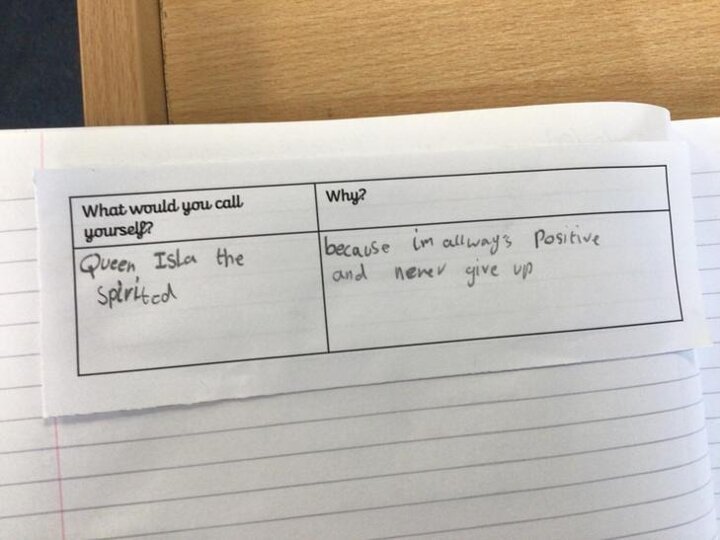 What would you call
yourself?
Why?
Queen Isla the
Spirited
because im allways Positive
and never give up